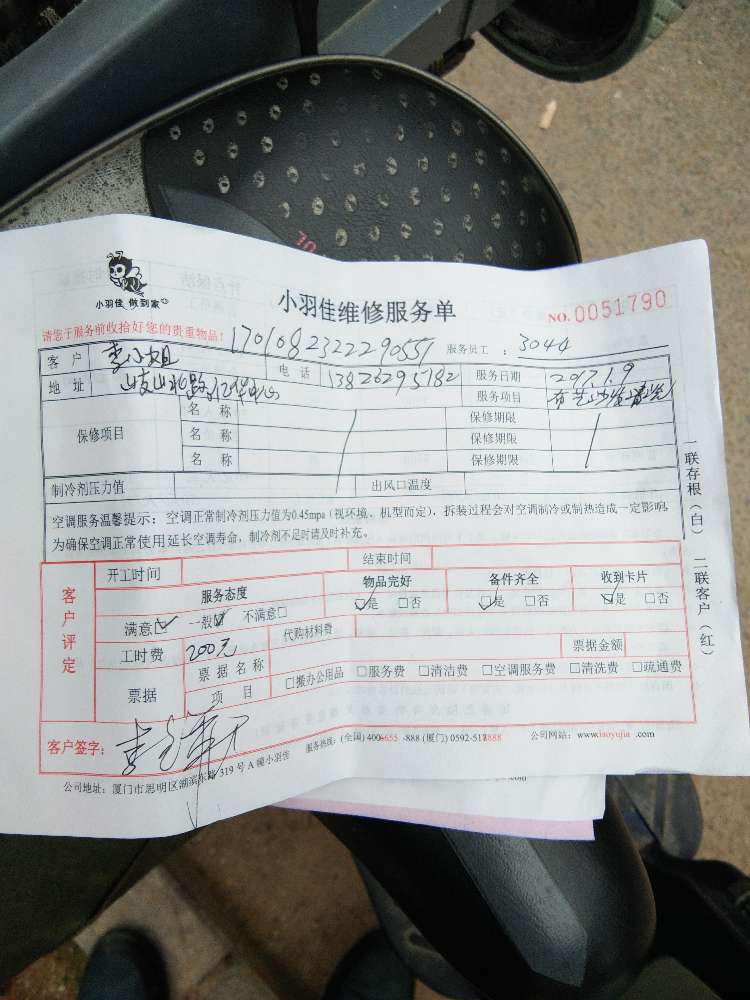 小羽佳 做到家
小羽佳维修服务单
NO.0051790
请您于服务前收拾好您的贵重物品!
170108232229055
服务员工: 3044
客户 李小姐 电话 13826295182 服务日期 2017.1.9
地址 服务项目 布艺沙发清洗
保修项目 名称 保修期限
名称 保修期限
名称 保修期限
制冷剂压力值 出风口温度
空调服务温馨提示:空调正常制冷剂压力值为0.45mpa(视环境、机型而定),拆装过程会对空调制冷或制热造成一定影响,
为确保空调正常使用延长空调寿命,制冷剂不足时请及时补充。
客户评定
开工时间 结束时间
服务态度 物品完好 备件齐全 收到卡片
满意□ 一般□ 不满意□ □是 □否 □是 □否 □是 □否
工时费 200元 代购材料费
票据 票据名称 票据金额
项目 □搬办公用品 □服务费 □清洁费 □空调服务费 □清洗费 □疏通费
客户签字:
服务热线:(全国)4006655-888 (厦门)0592-518888 公司网站:www.iaoyujia.com
公司地址:厦门市思明区湖滨东路319号A幢小羽佳
一联存根(白) 二联客户(红)